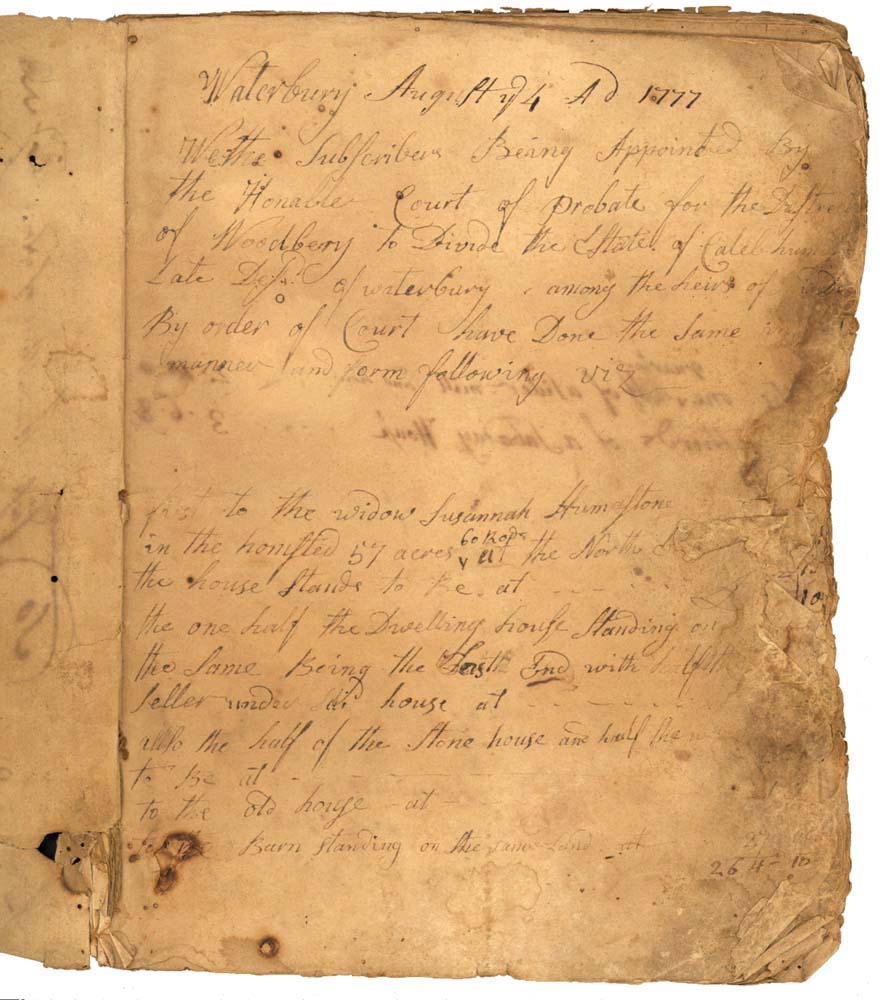 Waterbury August ye 4 AD 1777
We the Subscribers Being Appointed By
the Honable Court of Probate for the Distre
of Woodbery to Divide the Estate of Caleb hum
Late Desd of waterbury among the heirs of
By order of Court have Done the Same in
manner and form following viz
first to the widow Susannah Humastone
in the homsted 57 acres 60 Rods at the North
the house Stands to Be at
the one half the Dwelling house Standing on
the Same Being the East End with half th
Seller under Sd house at
allso the half of the Stone house and half the
to Be at
to the old house at
to the Barn Standing on the same Land at
264-10